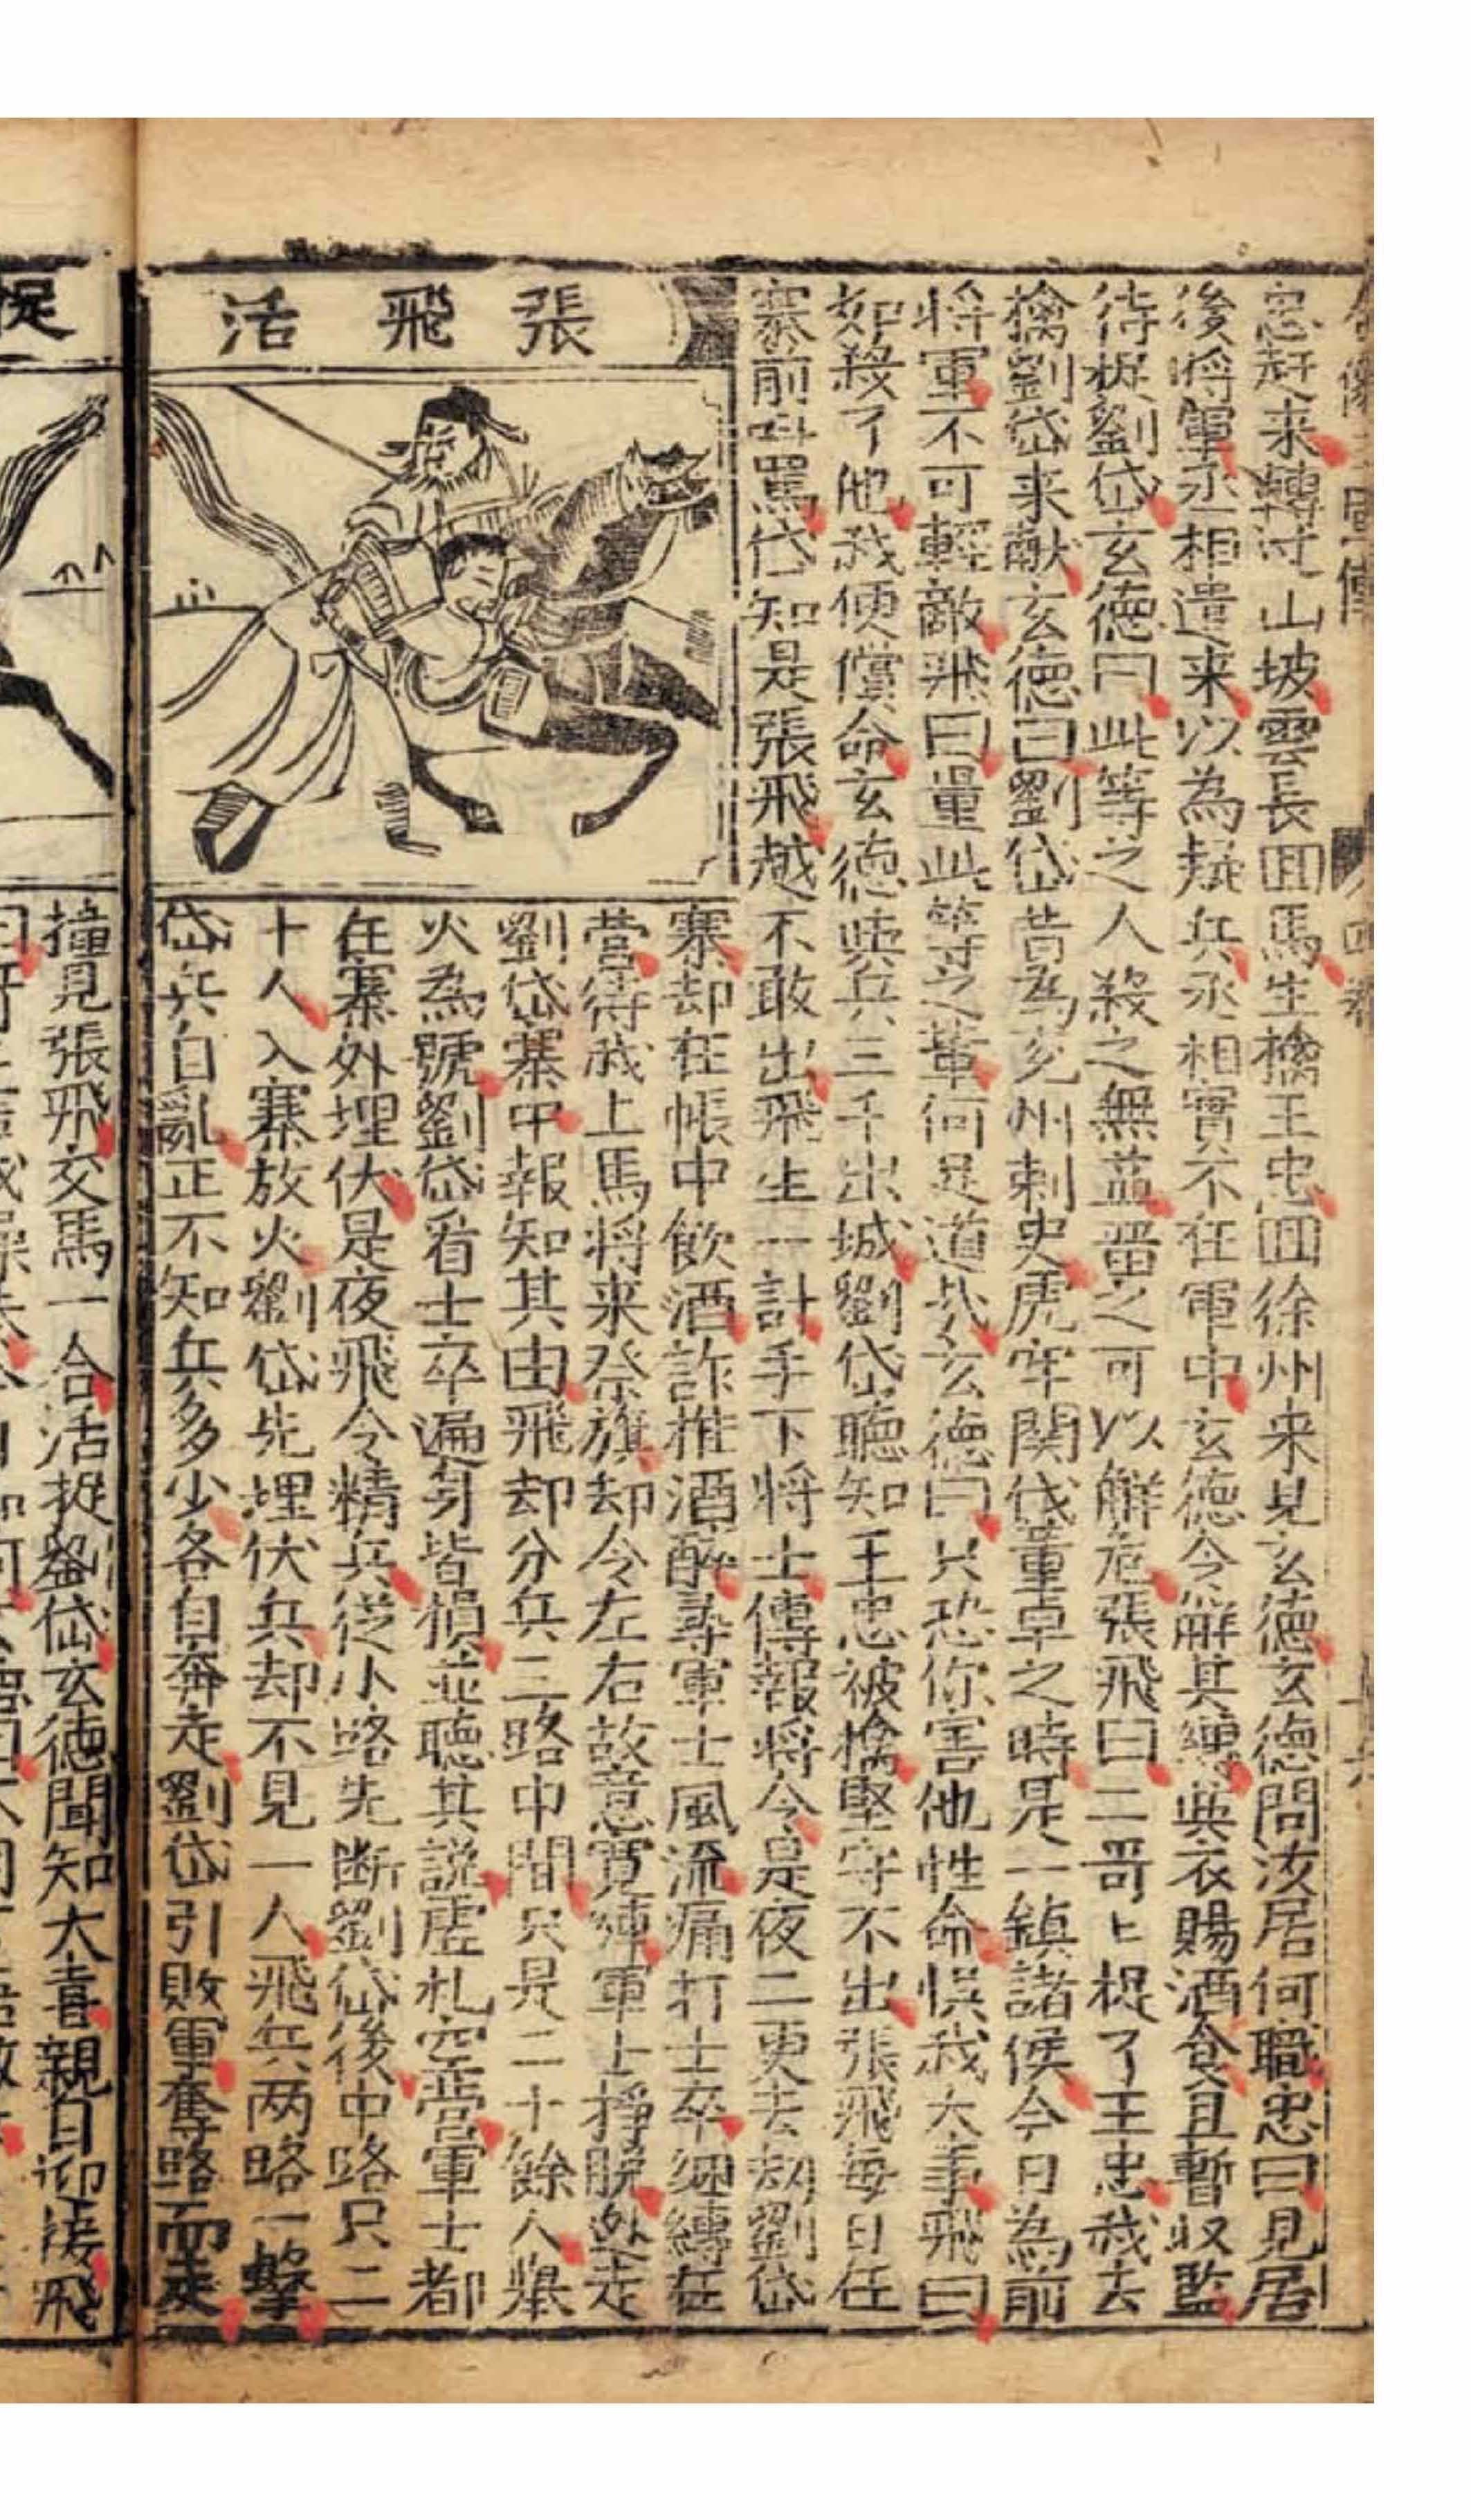 忠赶来轉过山坡雲長囬馬生擒王忠囬徐州来見玄德玄德問汝居何職忠曰見居
後将軍丞相遣来以為疑兵丞相實不在軍中玄德令觧其縛與衣賜酒食且暫收監
待捉劉岱玄德曰此等之人殺之無益畱之可以觧危張飛曰二哥上捉了王忠我去
擒劉岱来獻玄德曰劉岱昔為兖州刺史虎牢関伐董卓之時是一鎮諸侯今日為前
将軍不可輕敵飛曰量此等之輩何足道哉玄德曰只恐你害他性命悮我大事飛曰
如殺了他我便償命玄德與兵三千出城劉岱聽知王忠被擒堅守不出張飛每日在
寨前叫罵岱知是張飛越不敢出飛生一計手下将士傳報将令是夜二更去刼劉岱
張飛活
寨却在帳中飲酒詐推酒醉尋軍士風流痛打士卒綑縛在
營待我上馬将来祭旗却令左右故意寛縛軍士掙脫迯走
劉岱寨中報知其由飛却分兵三路中間只是二十餘人舉
火為號劉岱看士卒遍身皆損並聽其説虛札空營軍士都
在寨外埋伏是夜飛令精兵從小路先断劉岱後中路只二
十人入寨放火劉岱先埋伏兵却不見一人飛兵两路一擊
岱兵自亂正不知兵多少各自奔走劉岱引敗軍奪路而走
捉
撞見張飛交馬一合活捉劉岱玄德聞知大喜親自迎接飛